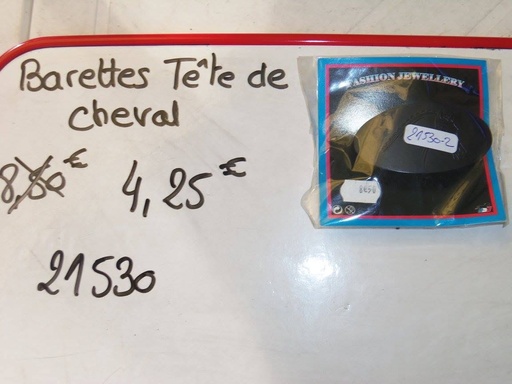 Barettes Tête de
cheval
8,50 €
4,25 €
21530
FASHION JEWELLERY
21530-2